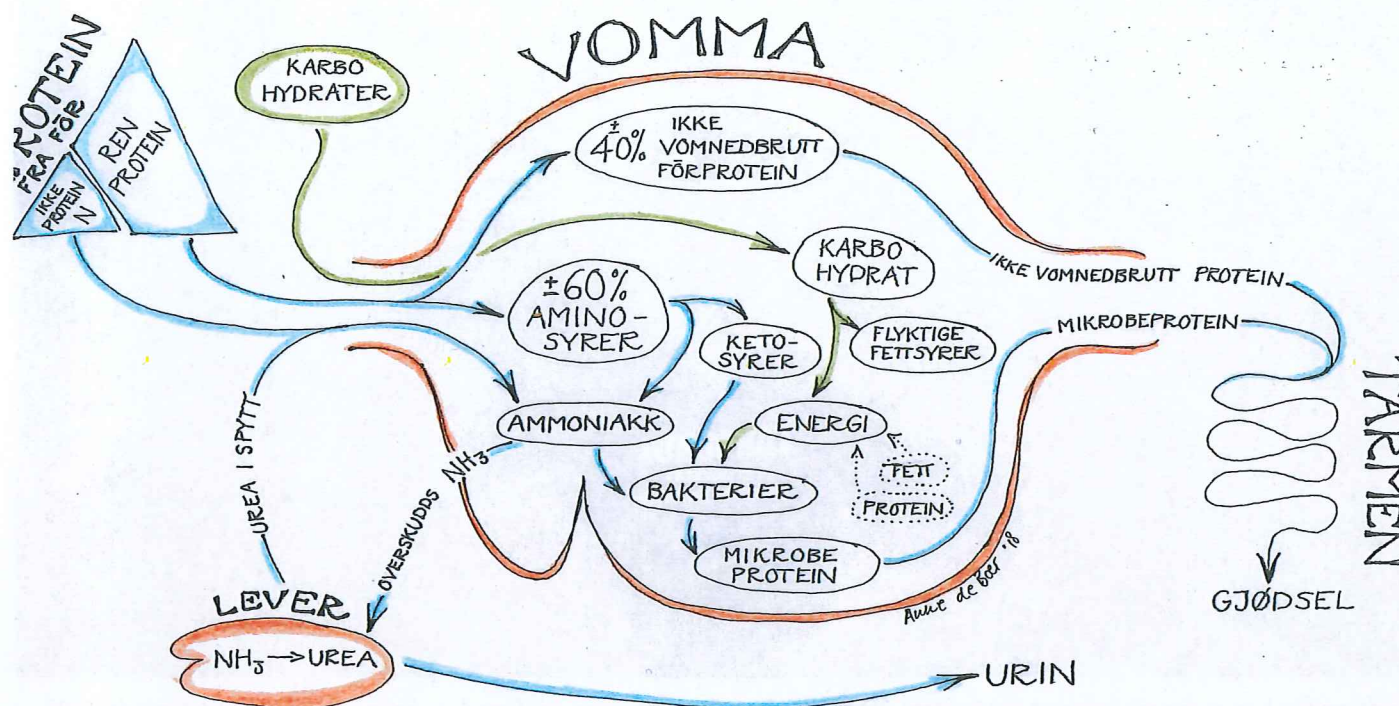 VOMMA
PROTEIN
FRA FÔR
IKKE
PROTEIN
N
REN
PROTEIN
KARBO
HYDRATER
± 40%
IKKE
VOMNEDBRUTT
FÔRPROTEIN
KARBO
HYDRAT
IKKE VOMNEDBRUTT PROTEIN
± 60%
AMINO-
SYRER
KETO-
SYRER
FLYKTIGE
FETTSYRER
MIKROBEPROTEIN
AMMONIAKK
ENERGI
FETT
PROTEIN
BAKTERIER
MIKROBE
PROTEIN
OVERSKUDDS NH₃
UREA I SPYTT
LEVER
NH₃ → UREA
URIN
TARMEN
GJØDSEL
Anne de Boer '18